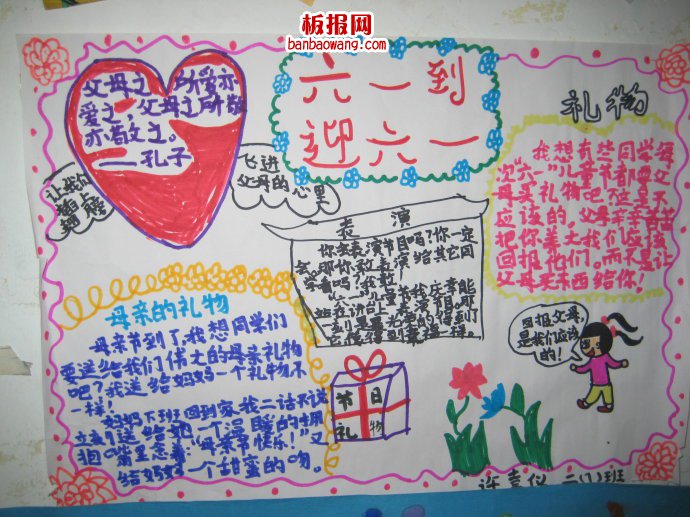 板报网
banbaowang.com
六一到
迎六一
父母之所爱亦
爱之,父母之所敬
亦敬之。
——孔子
让我们
插上
翅膀
飞进
父母的心里
礼物
我想有些同学每
次“六一”儿童节都要父
母买礼物吧?但是不
应该的,父母辛辛苦苦
把你养大我们应该
回报他们。而不是让
父母买东西给你!
表演
你去表演节目吗?你一定
会。那你敢表演给其它同
学看吗?我敢!
“六一”儿童节我庆幸能
站在讲台上表演节目,那
一刻是最光荣的得到了
母亲的礼物
母亲节到了,我想同学们
要送给我们伟大的母亲礼物
吧?我送给妈妈一个礼物不
一样!
妈妈下班回到家,我二话不说
立刻送给她一个温暖的拥
抱嘴里念着:“母亲节快乐!”又
给妈妈一个甜蜜的吻。
节日
礼物
回报父母,
是我们应该
的!
许 仪 二(1)班